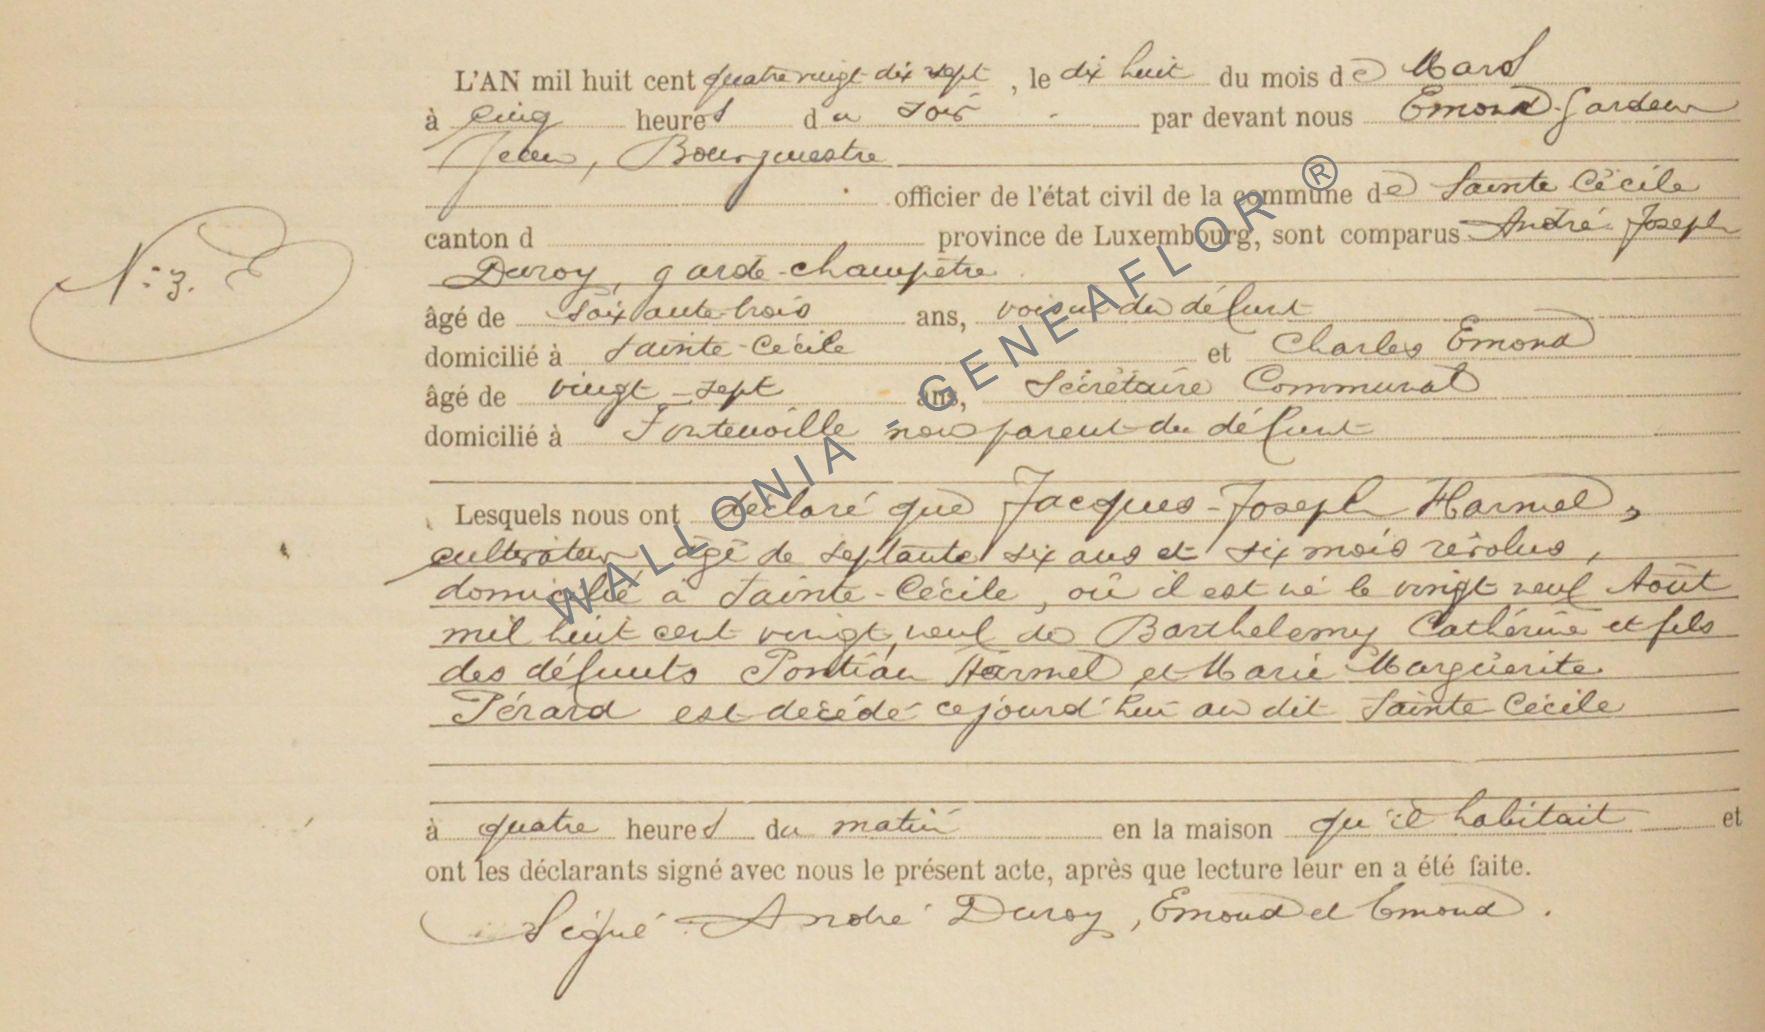 L'AN mil huit cent quatre vingt dix sept, le dix huit du mois de Mars
à cinq heures du soir par devant nous Emond-Gardeur
Jean, Bourgmestre
officier de l'état civil de la commune de Sainte Cécile
canton d province de Luxembourg, sont comparus André Joseph
Duroy, garde-champêtre
N° 3.
âgé de soixante-trois ans, voisin du défunt
domicilié à Sainte-Cécile et Charles Emond
âgé de vingt-sept ans, Sécrétaire Communal
domicilié à Fontenoille non parent du défunt
Lesquels nous ont déclaré que Jacques-Joseph Harmel,
cultivateur âgé de septante six ans et six mois révolus,
domicilié à Sainte-Cécile, où il est né le vingt neuf Août
mil huit cent vingt, veuf de Barthelemy Cathérine et fils
des défunts Pontian Harmel et Marie Marguerite
Pérard est décédé cejourd'hui au dit Sainte Cécile
à quatre heures du matin en la maison qu'il habitait et
ont les déclarants signé avec nous le présent acte, après que lecture leur en a été faite.
Signé André Duroy, Emond et Emond.
WALLONIA - GENEAFLOR ®